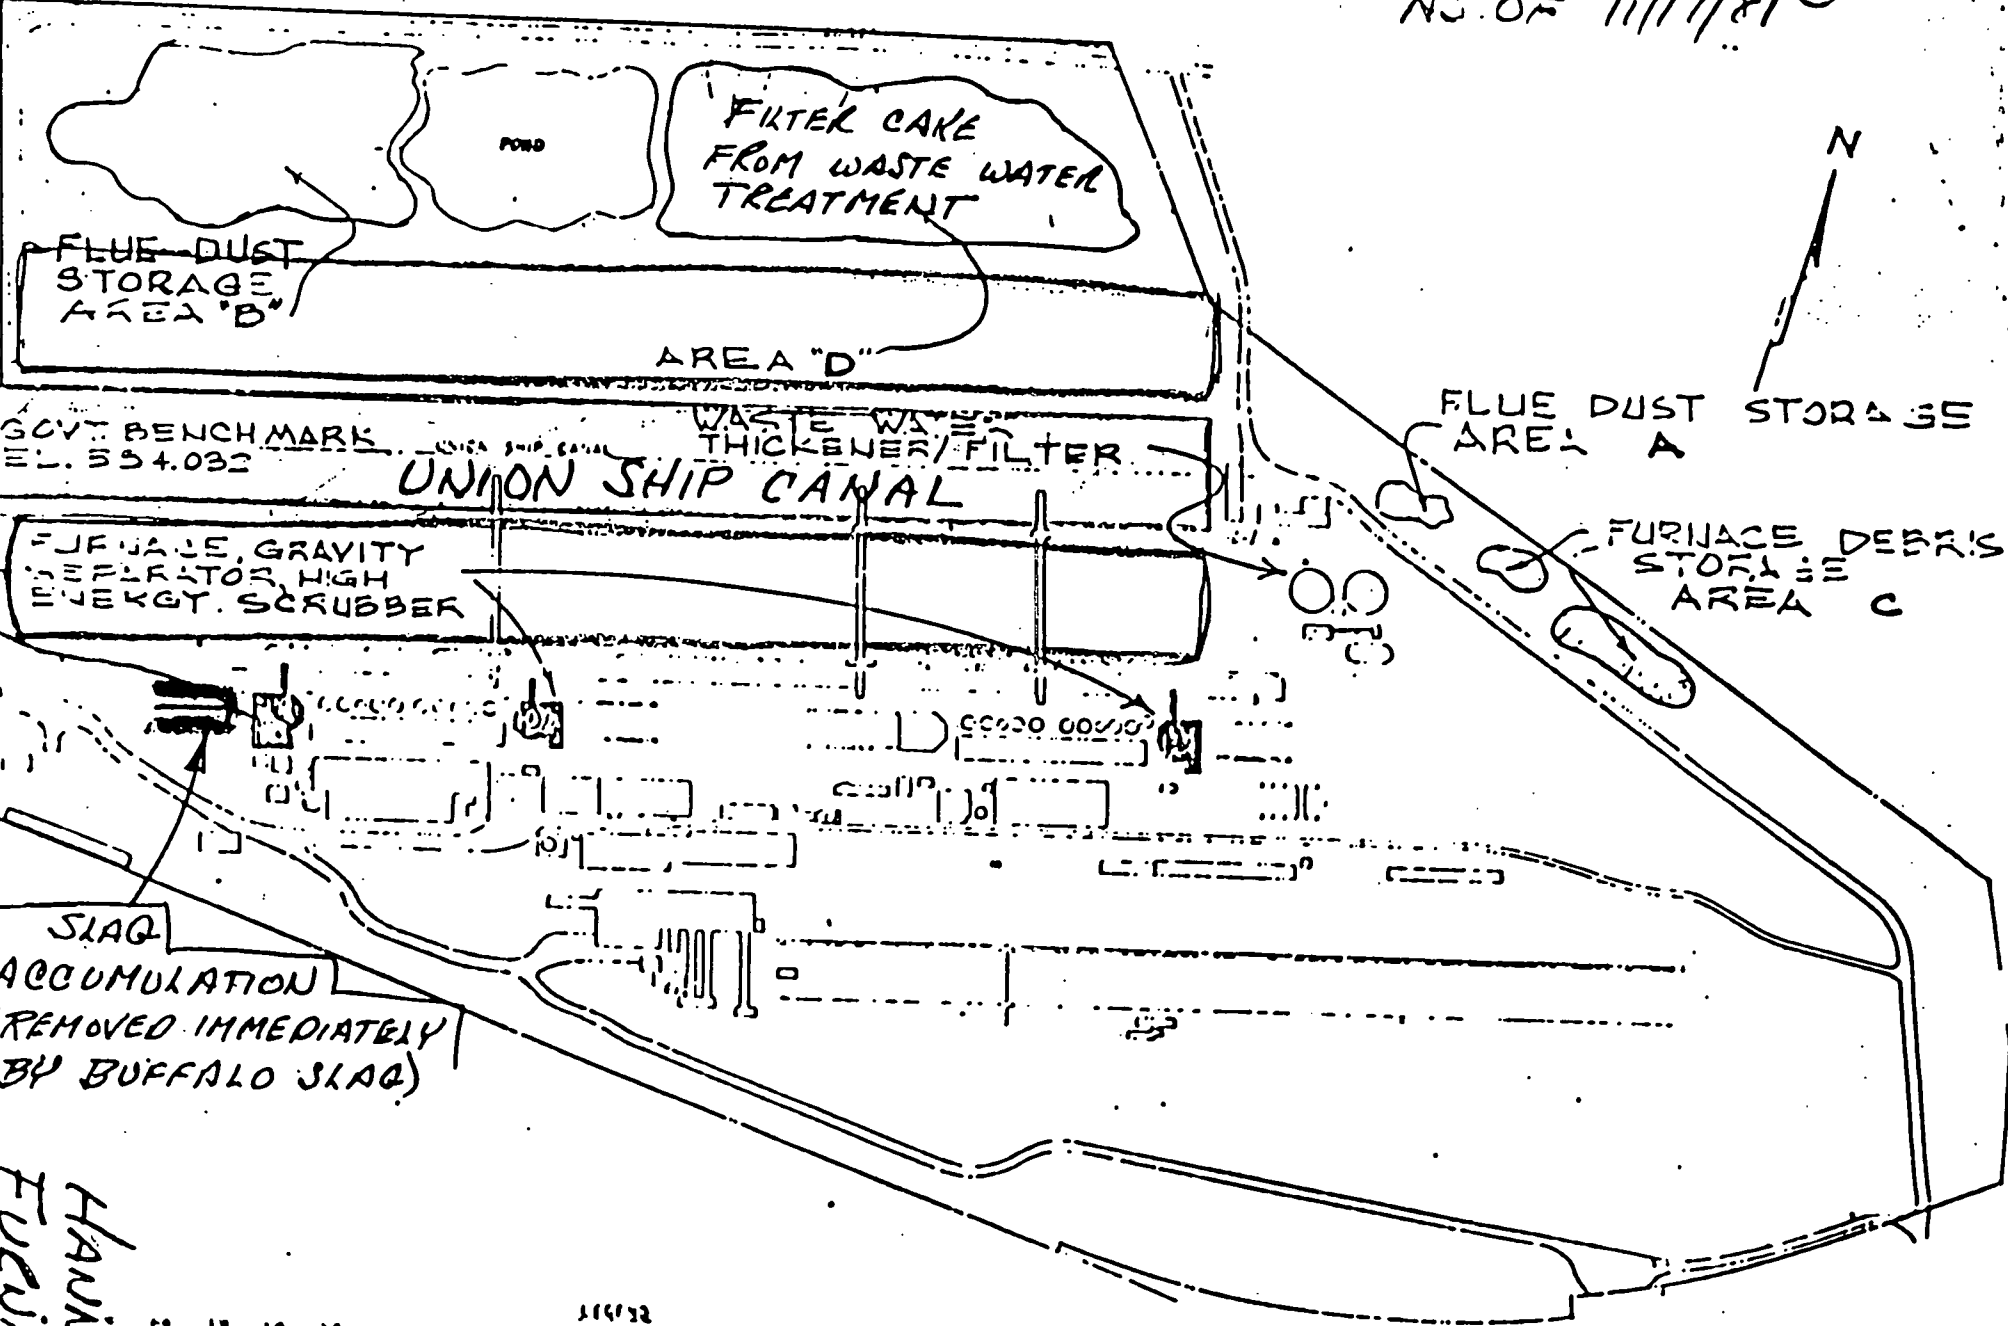 AS OF 11/17/81
N
POND
FILTER CAKE
FROM WASTE WATER
TREATMENT
FLUE DUST
STORAGE
AREA "B"
AREA "D"
GOVT BENCH MARK
EL. 594.032
UNION SHIP CANAL
WASTE WATER
THICKENER/FILTER
UNION SHIP CANAL
FLUE DUST STORAGE
AREA A
FURNACE DEBRIS
STORAGE
AREA C
FURNACE, GRAVITY
SEPERATOR, HIGH
ENERGY. SCRUBBER
SLAG
ACCUMULATION
REMOVED IMMEDIATELY
BY BUFFALO SLAG)
HANNA